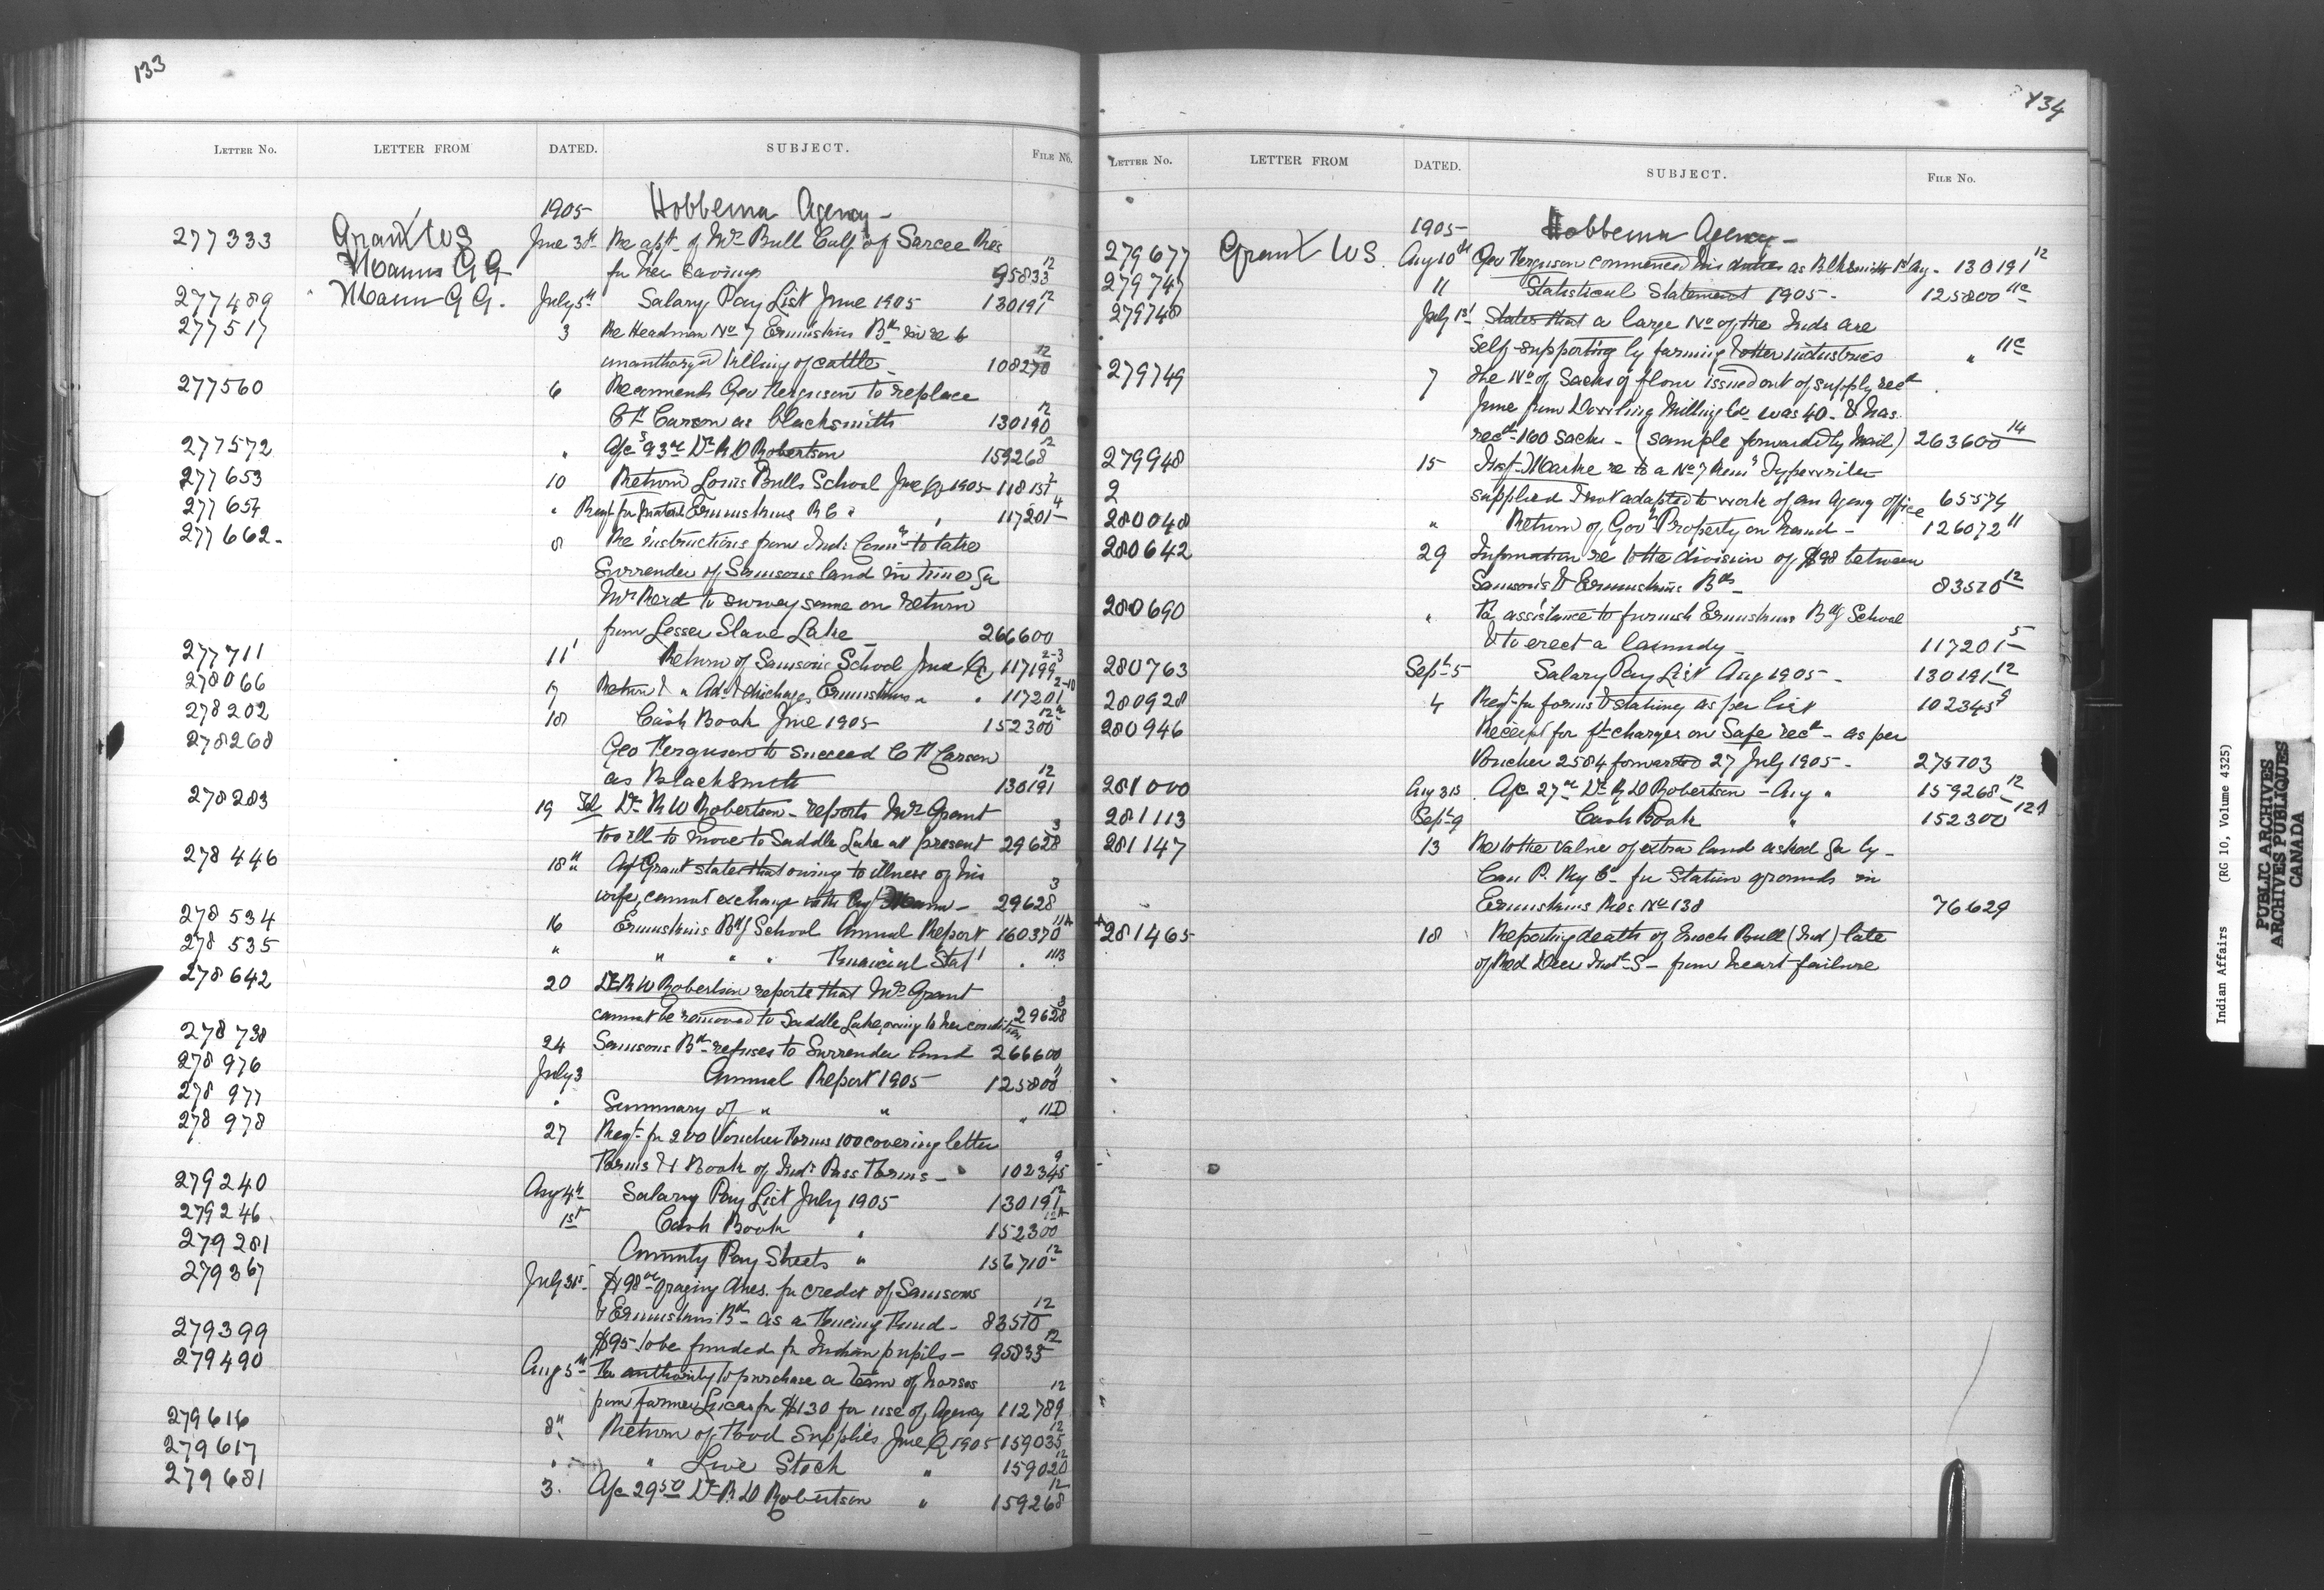 133
LETTER NO. LETTER FROM DATED. SUBJECT. FILE NO.
1905 Hobbema Agency -
277333 Grant WS June 30th Re apt. of Mrs Bull Calf of Sarcee Res
Mann GG for her savings 95833 12
277489 Mann GG. July 5th Salary Pay List June 1905 130191 12
277517 3 Re Headman No 7 Ermineskins Bd in re to
unauthorized killing of cattle - 108270 12
277560 6 Recommends Geo Ferguson to replace
C H Carson as blacksmith 130190 12
277572 " a/c Dr R D Robertson 159268 12
277653 10 Return Louis Bulls School June Q 1905 - 118151 2
277654 " Reqt for material Ermineskins R C " " 117201 4
277662 - 8 Re instructions from Ind: Comr to take
Surrender of Samsons land in time for
Mr Reid to survey same on return
from Lesser Slave Lake - 266600
277711 11 Return of Samsons School June Q 117199 2-3
278066 17 Return & " Ad: & discharge Ermineskins " " 117201 2-10
278202 18 Cash Book June 1905 152300 12A
278268 Geo Ferguson to succeed C H Carson
as Blacksmith 130191 12
278283 19 Tel Dr R W Robertson - reports Mrs Grant
too ill to move to Saddle Lake at present 29628 3
278446 18th " Agt Grant states that owing to illness of his
wife, cannot exchange with Agt Mann - 29628 3
278534 16 Ermineskins Bdg School Annual Report 160370 11A
278535 " " " " Financial Stat' " 11B
278642 20 Dr R W Robertson reports that Mrs Grant
cannot be removed to Saddle Lake, owing to her condition 29628 3
278738 24 Samsons Bd - refuses to Surrender land 266600
278976 July 3 Annual Report 1905 125800 11
278977 " Summary of " " " 11D
278978 27 Reqt - for 200 Voucher Forms 100 covering letter
Forms & 1 Book of Ind: Pass Forms - " 102345 9
279240 Aug 4th Salary Pay List July 1905 130191 12
279246 1st Cash Book " 152300 12A
279281 Annuity Pay Sheets " 156710 12
279367 July 31st $98 00 grazing dues. for credit of Samsons
& Ermineskins Bd - as a Fencing Fund - 83510 12
279399 $95 - to be funded for Indian pupils - 95833 12
279490 Aug 5th For authority to purchase a team of horses
from farmer Lucas for $130 for use of Agency 112789 12
279616 8th Return of Food Supplies June Q 1905 159035 12
279617 " " Live Stock " 159020 12
279681 3. a/c 29 50 Dr R D Robertson " 159268 12
134
LETTER NO. LETTER FROM DATED. SUBJECT. FILE NO.
1905 - Hobbema Agency -
279677 Grant WS. Aug 10th Geo Ferguson commenced his duties as Blksmith 1st Aug - 130191 12
279747 11 Statistical Statement 1905 - 125800 11C
279748 July 1st States that a large No of the Inds are
self-supporting by farming & other industries " 11C
279749 7 The No of Sacks of flour issued out of supply recd
June from Dowling Milling Co was 40 - & has
recd - 160 sacks - (sample forwarded by mail) 263600 14
279948 15 Inst - Markle re to a No 7 Rem: Typewriter
2 supplied & not adapted to work of an Agency Office 65574
280048 " Return of Govt Property on hand - 126072 11
280642 29 Information re to the division of $98 between
Samson's & Ermineskins Bds - 83510 12
280690 " For assistance to furnish Ermineskins Bdg School
& to erect a laundry - 117201 5
280763 Sept 5 Salary Pay List Aug 1905 - 130191 12
280928 4 Reqt - for forms & stationy as per list 102345 9
280946 Receipt for ft charges on Safe recd - as per
Voucher 2584 forwarded 27 July 1905 - 275103
281000 Aug 31s a/c 27 00 Dr R D Robertson - Aug " 159268 12
281113 Sept 9 Cash Book " 152300 12A
281147 13 Re to the value of extra land asked for by -
Can P. Ry Co - for Station grounds in
Ermineskins Res No 138 76629
281465 18 Reporting death of Enoch Bull (Ind) late
of Red Deer Indl S - from heart failure
Indian Affairs (RG 10, Volume 4325)
PUBLIC ARCHIVES
ARCHIVES PUBLIQUES
CANADA